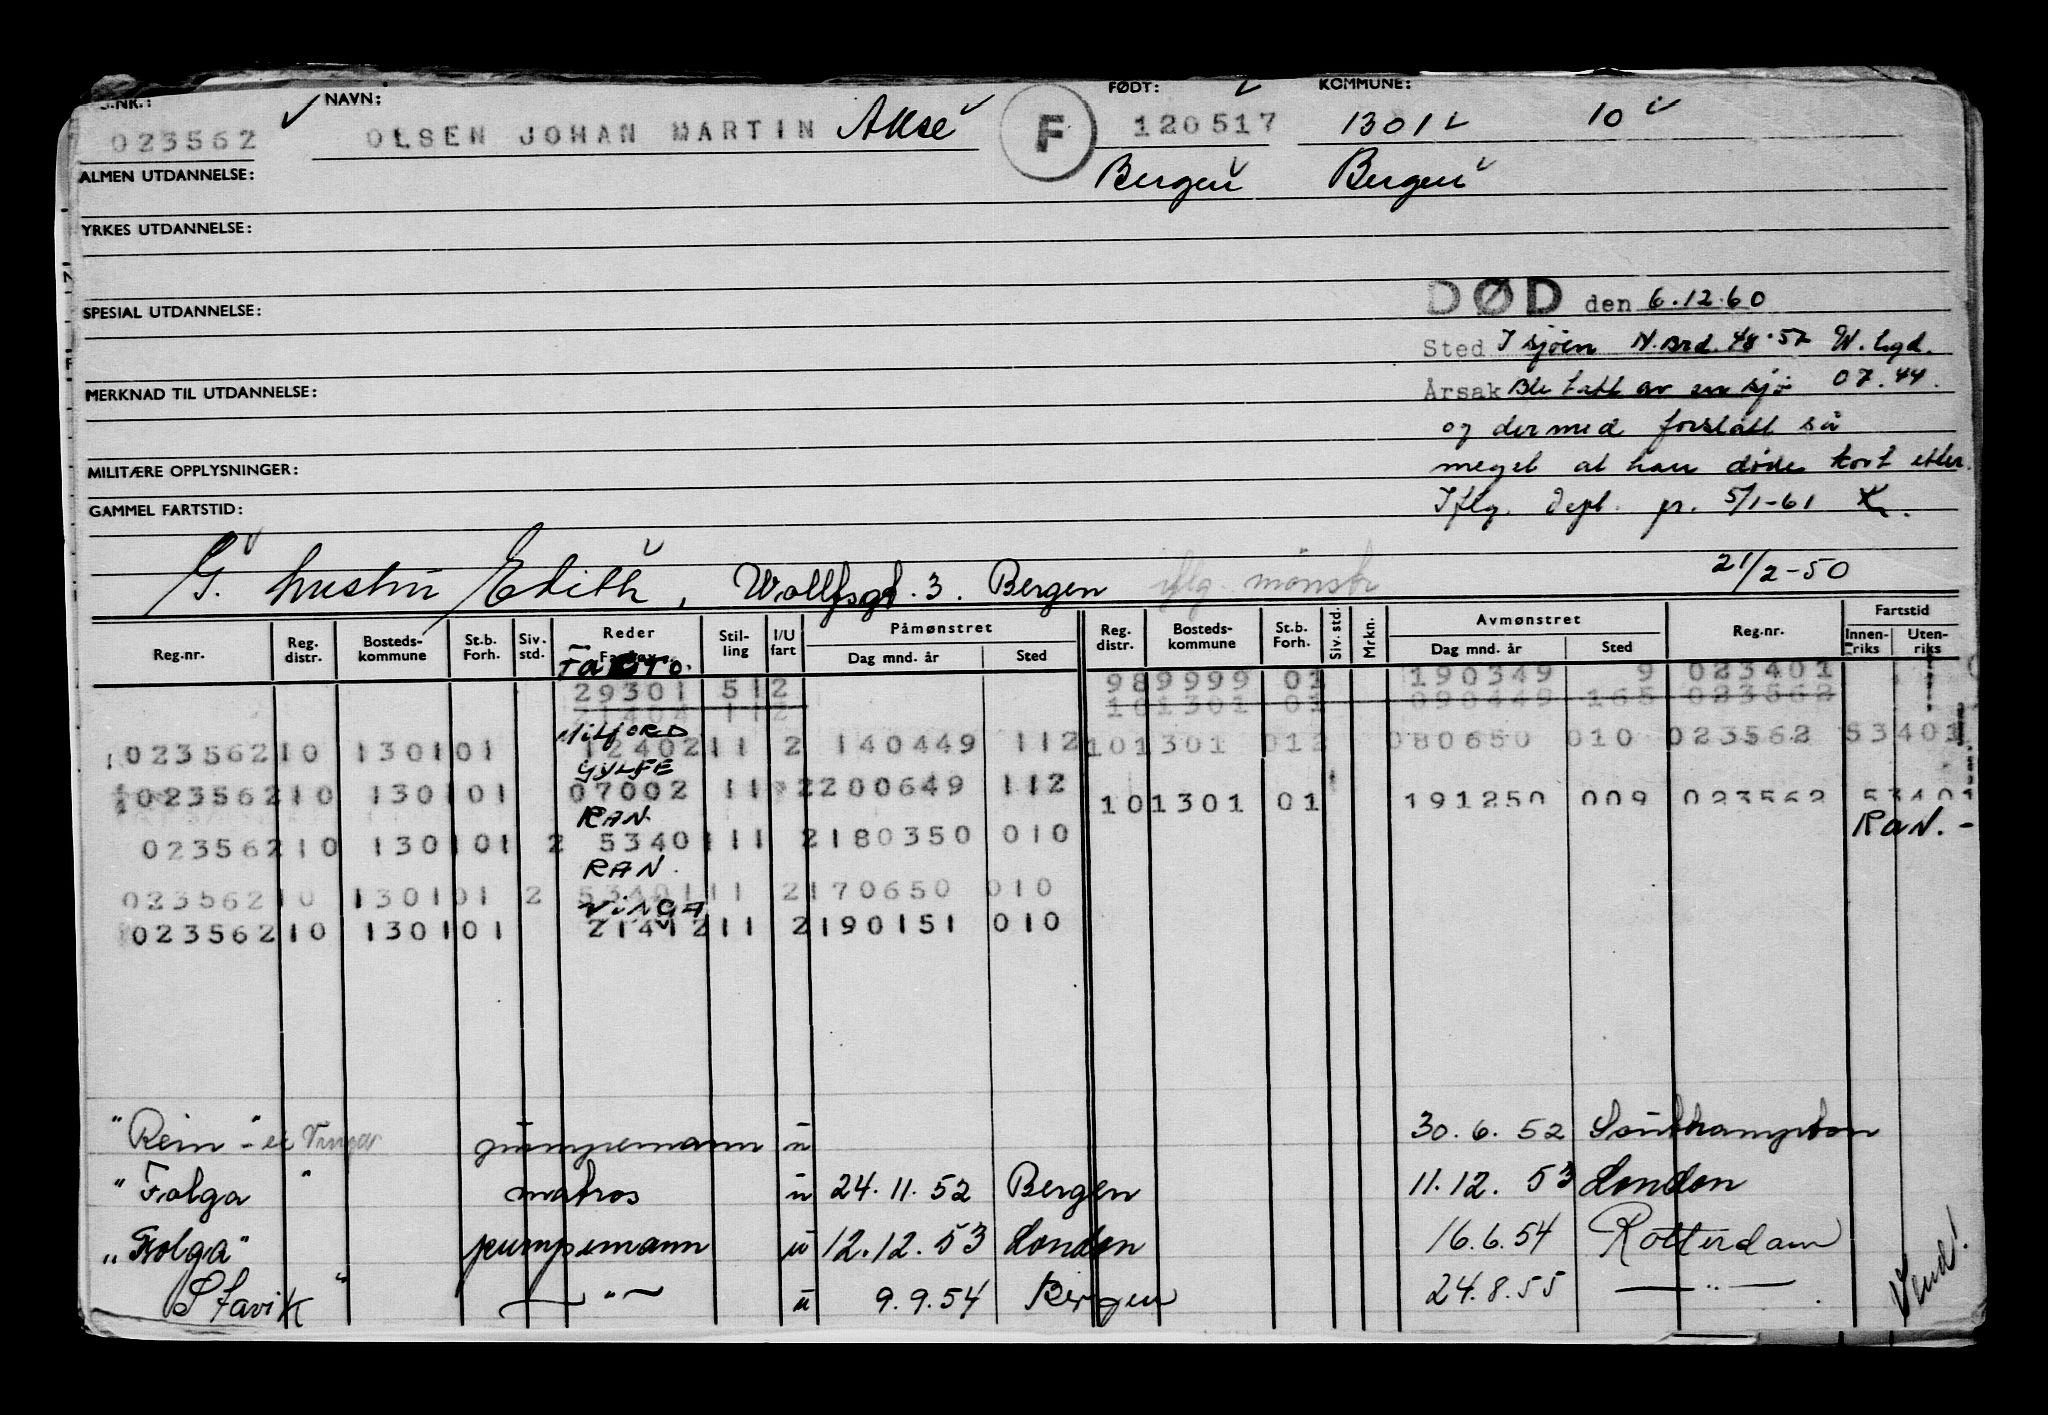 S.NR.: NAVN: FØDT: KOMMUNE:
023562 OLSEN JOHAN MARTIN Akse F 120517 1301 10
ALMEN UTDANNELSE: Bergen Bergen
YRKES UTDANNELSE:
DØD den 6.12.60
SPESIAL UTDANNELSE:
Sted I sjøen N.Brd. 48.57 W. Lgd.
MERKNAD TIL UTDANNELSE: Årsak Ble tatt av en sjø 07.44.
og dermed forslått så
MILITÆRE OPPLYSNINGER: meget at han døde kort etter.
GAMMEL FARTSTID: Iflg. Dept. pr. 5/1-61
G. hustru Edith, Wollfsgt. 3. Bergen iflg. mønstr 21/2-50
Reg.nr. Reg. distr. Bosteds- kommune St.b. Forh. Siv. std. Reder Stil- ling I/U fart Påmønstret Dag mnd. år Sted Reg. distr. Bosteds- kommune St.b. Forh. Siv. std. Mrkn. Avmønstret Dag mnd. år Sted Reg.nr. Fartstid Innen- riks Uten- riks
29301 512 989999 01 190349 9 023401
21404 112 101301 01 090449 165 023562
Milford
023562 10 1301 01 12402 11 2 140449 112 101301 012 080650 010 023562 53401
GYLFE
023562 10 1301 01 07002 11 2 200649 112 101301 01 191250 009 023562 53401
RAN. RAN. -
023562 10 1301 01 2 53401 11 2 180350 010
RAN.
023562 10 1301 01 2 53401 11 2 170650 010
VINGA
023562 10 1301 01 21412 11 2 190151 010
"Rein" - ex Vinga pumpemann u 30.6.52 Southampton
"Folga" matros u 24.11.52 Bergen 11.12.53 London
"Folga" pumpemann u 12.12.53 London 16.6.54 Rotterdam
Stavik" — " — u 9.9.54 Bergen 24.8.55 — " —
Vend!